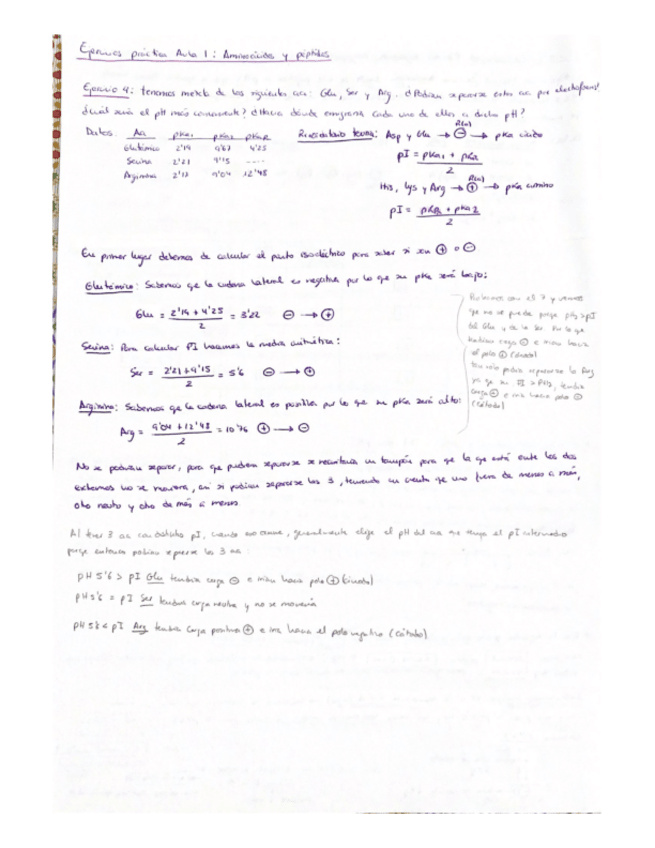 Ejercicios práctica Aula 1: Aminoácidos y péptidos
Ejercicio 4: tenemos mezcla de los siguientes aa: Glu, Ser y Arg. ¿Podrían separarse estos aa por electroforesis?
¿Cuál sería el pH más conveniente? ¿Hacia dónde emigraría cada uno de ellos a dicho pH?
Datos: Aa pKa1 pKa2 pKaR
Glutámico 2'19 9'67 4'25
Serina 2'21 9'15 ----
Arginina 2'17 9'04 12'48
Asp y Glu → ⊖ → pKa ácido
pI = pKa1 + pKR / 2
His, Lys y Arg → ⊕ → pKa amino
pI = pKR + pKa2 / 2
En primer lugar debemos de calcular el punto isoeléctrico para saber si son ⊕ o ⊖
Glutámico: Sabemos que la cadena lateral es negativa por lo que su pKa será bajo:
Glu = 2'19 + 4'25 / 2 = 3'22 ⊖ → ⊕
Serina: Para calcular PI hacemos la media aritmética:
Ser = 2'21 + 9'15 / 2 = 5'6 ⊖ → ⊕
Arginina: Sabemos que la cadena lateral es positiva por lo que su pKa será alto:
Arg = 9'04 + 12'48 / 2 = 10'76 ⊕ → ⊖
No se podrían separar, para que pudieran separarse se necesitaría un tampón para que la que está entre los dos
extremos no se moviera, así si podrían separarse los 3, teniendo en cuenta que uno fuera de menos a más,
otro neutro y otro de más a menos.
Al tener 3 aa con distinto pI, generalmente elige el pH del aa que tenga el pI intermedio
porque entonces podrían separarse los 3 aa:
pH 5'6 > pI Glu tendría carga ⊖ e iría hacia polo ⊕ (ánodo)
pH 5'6 = pI Ser tendría carga neutra y no se movería
pH 5'6 < pI Arg tendría carga positiva ⊕ e iría hacia el polo negativo (cátodo)